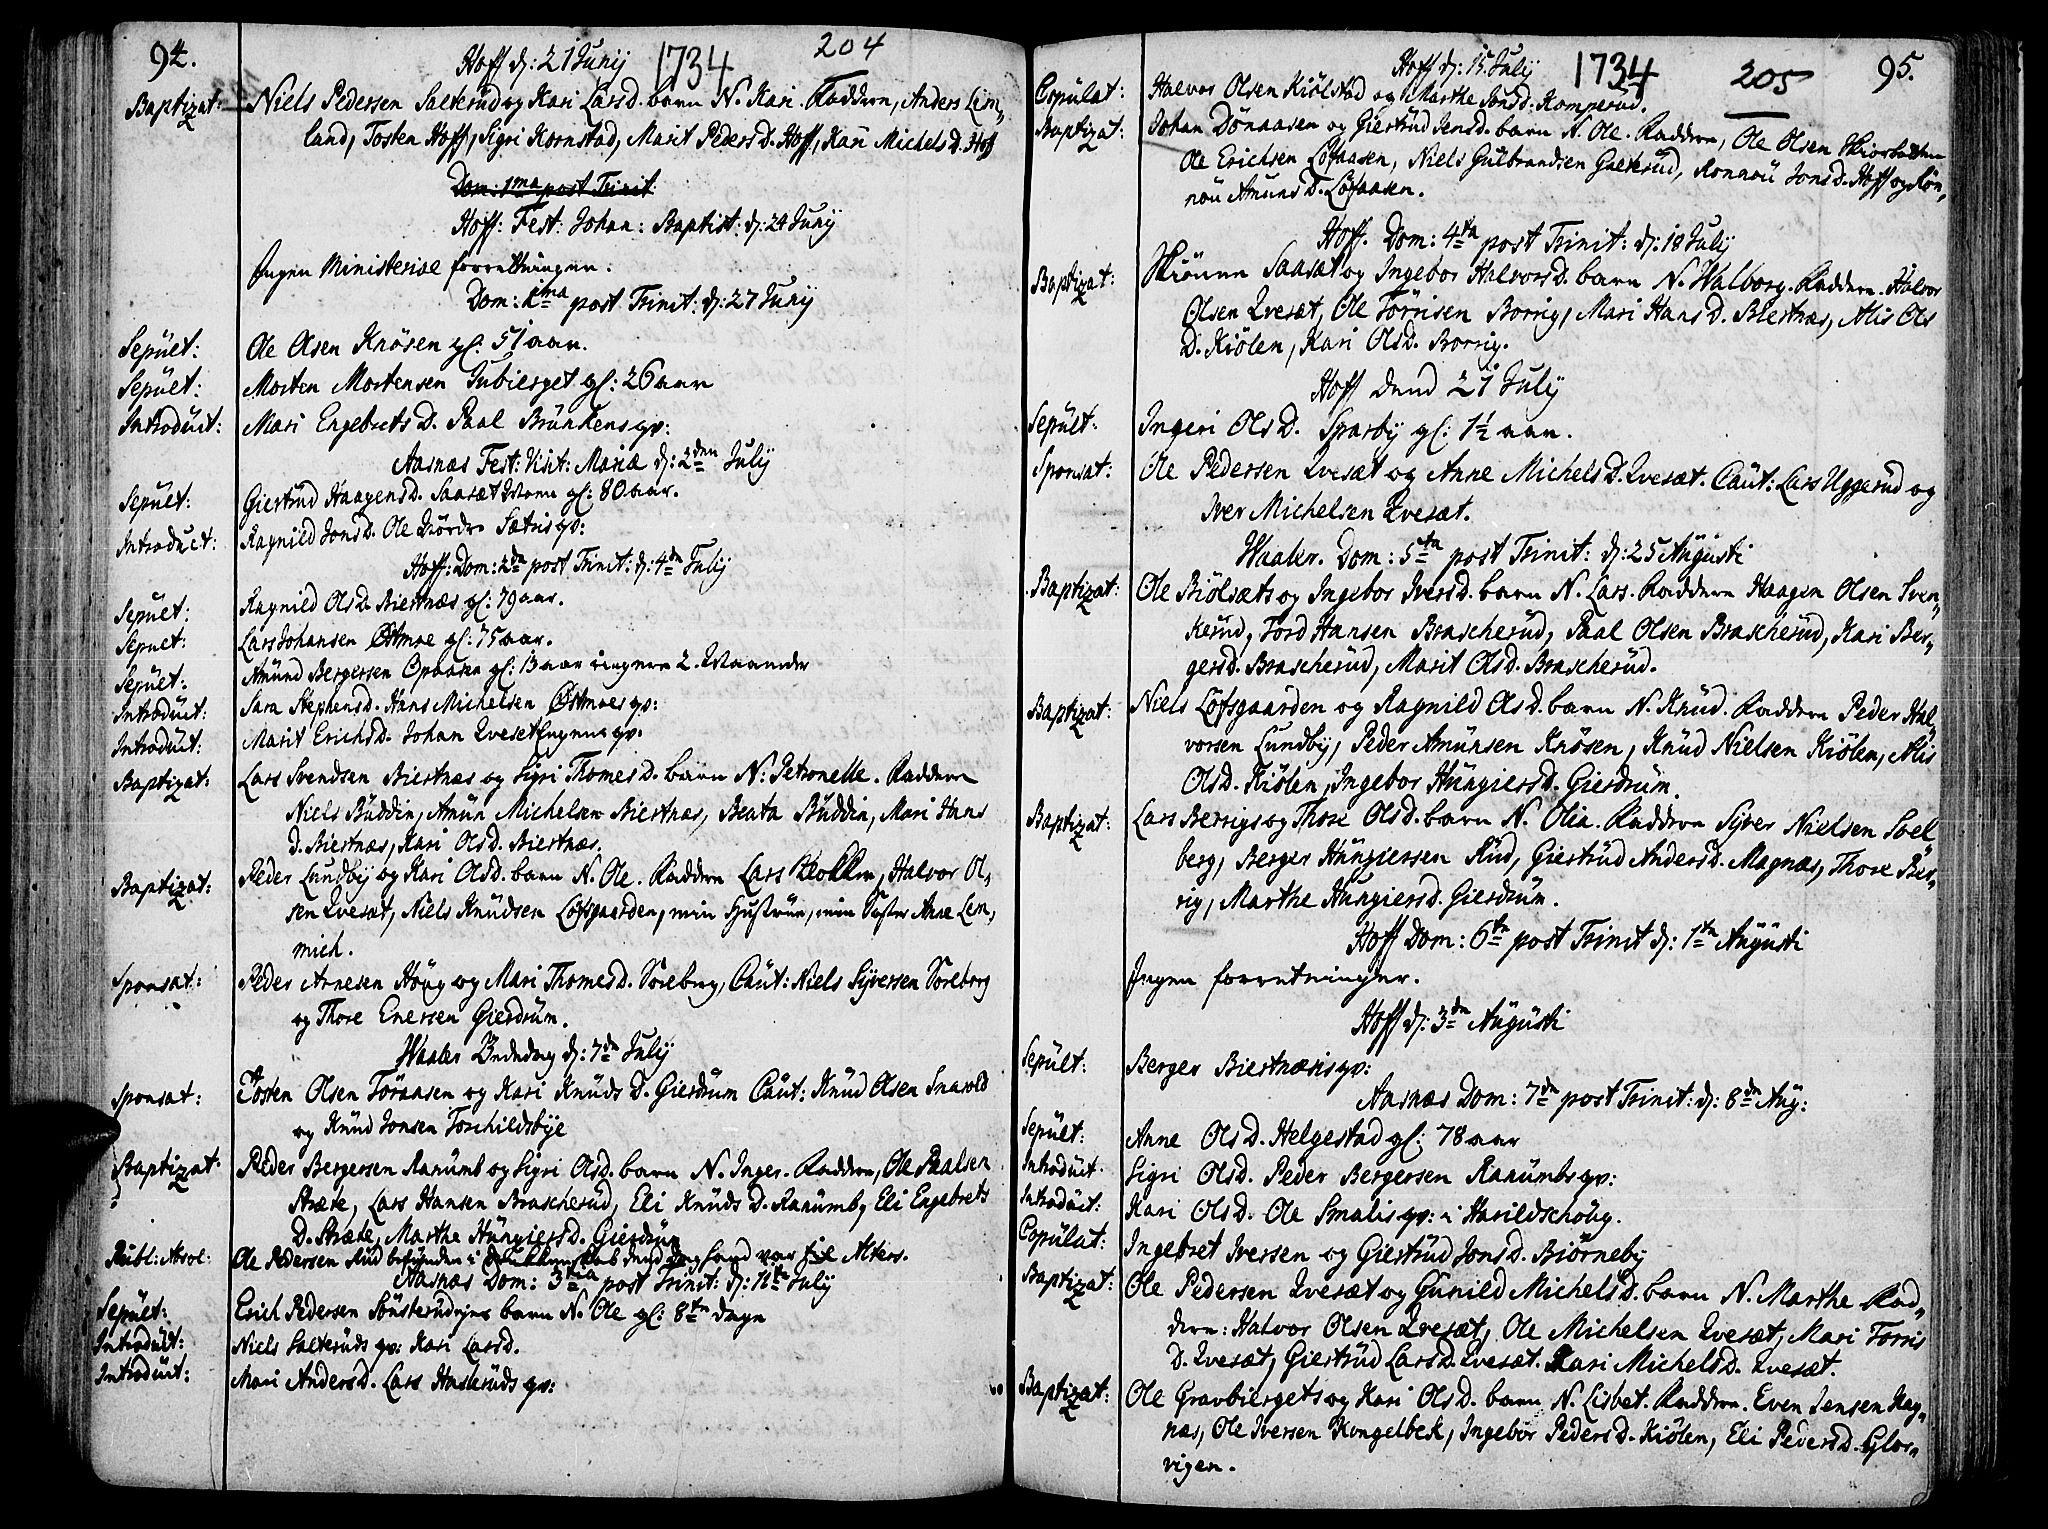 94.
Hoff d: 21 Junij 1734 204
Baptizat: Niels Pedersen Salterud og Kari Larsd. barn N. Kari. Faddern, Anders Lem,
land, Tosten Hoff, Sigri Kornstad, Marit Pedersd. Hoff, Kari Michelsd. Hoff
Dom: 1ma post Trinit:
Hoff: Fest: Johan: Baptist: d: 24 Junij
Ingen Ministeriae forrettninger.
Dom: 1ma post Trinit: d: 27 Junij
Sepult: Ole Olsen Knösen gl: 51 aar.
Sepult: Morten Mortensen Julbierget gl: 26 aar
Introduct: Mari Engebretsd. Paal Brünkens qv:
Aasnæs Fest: Visit: Mariæ d: 2den Julij
Sepult: Giertrüd Haagensd. Saaset gl: 80 aar.
Introduct: Ragnild Jonsd. Ole Sætris qv:
Hoff: Dom: 2da post Trinit: d: 4de Julij
Sepult: Ragnild Olsd. Biertnæs gl: 79 aar.
Sepult: Lars Johansen Østmoe gl: 75 aar.
Sepult: Amünd Bergersen Opaasen gl: 13 aar 2. Maaneder
Introduct: Sara Stephensd. Hans Michelsen Østmoes qv:
Introduct: Marit Erichsd. Johan Qveset qv:
Baptizat: Lars Svendsen Biertnæs og Sigri Thomesd. barn N: Petronelle. Faddern
Niels Büddin, Amün Michelsen Biertnæs, Beata Büddin, Mari Hans
D. Biertnæs, Kari Olsd. Biertnæs.
Baptizat: Peder Lundbÿ og Kari Olsd. barn N. Ole. Faddern Lars Klokker, Halvor Ol,
sen Qveset, Niels Knüdsen Löfsgaarden, min Hustrue, min Søster Anne Lem,
mich.
Sponsat: Peder Arnesen Höüg og Mari Thomesd. Soreberg, Caut: Niels Syversen Soreberg
og Thore Enersen Gierdrüm.
Waaler Bededag d: 7de Julij
Sponsat: Tosten Olsen Töraasen og Kari Knüdsd. Gierdrüm Caut: Knüd Olsen Snarold
og Knüd Jonsen Torchildsbÿe
Baptizat: Peder Bergersen Ranümb og Sigri Olsd. barn N. Inger. Faddern, Ole Paalsen
Stræte, Lars Hansen Brascherüd, Eli Knüdsd. Ranümb, Eli Engebrets
D. Stræte, Marthe Hüngiersd. Gierdrüm
Publ: Absol: Ole Pedersen Rüd i til Alters.
Aasnæs Dom: 3tia post Trinit: d: 11te Julij
Sepult: Erich Pedersen barn N. Ole gl: 8te dage
Introduct: Niels Salterüds qv: Kari Larsd.
Introduct: Mari Andersd. Lars Haslerüds qv:
95.
Hoff d: 15 Julij 1734 205
Copulat: Halvor Olsen Kiölstad og Marthe Jonsd. Kamperüd.
Baptizat: Johan Dönaasen og Giertrüd Jensd. barn N. Ole. Faddern, Ole Olsen
Ole Erichsen Löfaasen, Niels Gulbrandsen Galterüd, Ronnou Jonsd. Hoff og Ron,
nou Amunsd. Löfaasen.
Hoff. Dom: 4ta post Trinit: d: 18 Julij
Baptizat: Saaset og Ingebor Halvorsd. barn N. Walborg. Faddern. Halvor
Olsen Qveset, Ole Törrisen Borrig, Mari Hansd. Biertnæs, Alis Ols
D. Kiölen, Kari Olsd. Borrig.
Hoff dend 21 Julij
Sepult: Ingeri Olsd. Sparbÿ gl: 1½ aar.
Sponsat: Ole Pedersen Qveset og Anne Michelsd. Qveset. Caut: Lars Uggerüd og
Iver Michelsen Qveset.
Waaler. Dom: 5ta post Trinit: d: 25 Augusti
Baptizat: Ole Biölsets og Ingebor Iversd. barn N. Lars. Faddern Haagen Olsen Sven,
kerüd, Tord Hansen Brascherüd, Paal Olsen Brascherüd, Kari Ber,
gersd. Brascherüd, Marit Olsd. Brascherüd.
Baptizat: Niels Löfsgaarden og Ragnild Olsd. barn N. Knüd. Faddern Peder Hal,
vorsen Lundbÿ, Peder Amunsen Knösen, Knüd Nielsen Kiölen, Alis
Olsd. Kiölen, Ingebor Hüngiersd. Gierdrüm.
Baptizat: Lars Berrigs og Thore Olsd. barn N. Olia. Faddern Syver Nielsen Soel
berg, Berger Hüngiersen Rüd, Giertrüd Andersd. Magnæs, Thore Ber,
rig, Marthe Hungiersd. Gierdrüm.
Hoff Dom: 6te post Trinit d: 1te Augusti
Ingen forretninger.
Hoff d: 3de Augusti
Sepult: Berger Biertnæsis qv:
Aasnæs Dom: 7de post Trinit: d: 8de Aug:
Sepult: Anne Olsd. Helgestad gl: 78 aar
Introduct. Sigri Olsd. Peder Bergersen Ranümbs qv:
Introduct: Kari Olsd. Ole Smalis qv: i Harildschoug.
Copulat: Ingebret Iversen og Giertrüd Jonsd. Biörnebÿ
Baptizat: Ole Pedersen Qveset og Gunild Michelsd. barn N. Marthe Fad,
dern: Halvor Olsen Qveset, Ole Michelsen Qveset, Mari Torris
D. Qveset, Giertrüd Larsd. Qveset. Kari Michelsd. Qveset.
Baptizat: Ole Gravbiergets og Kari Olsd. barn N. Lisbet. Faddern. Even Jensen Mag,
næs, Ole Iversen Kongelbek, Ingebor Pedersd. Kiölen, Eli Pedersd. Glor,
vigen.